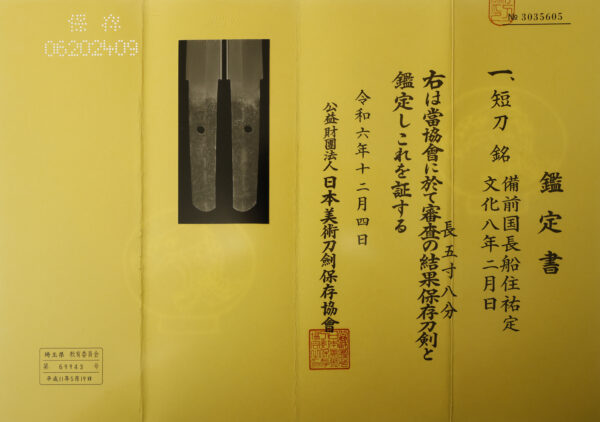 № 3035605
鑑定書
一、短刀 銘 備前国長船住祐定
文化八年二月日
長五寸八分
右は當協會に於て審査の結果保存刀剣と
鑑定しこれを証する
令和六年十二月四日
公益財團法人 日本美術刀劍保存協會
保存
06202409
埼玉県 教育委員会
第 69943 号
平成11年5月19日